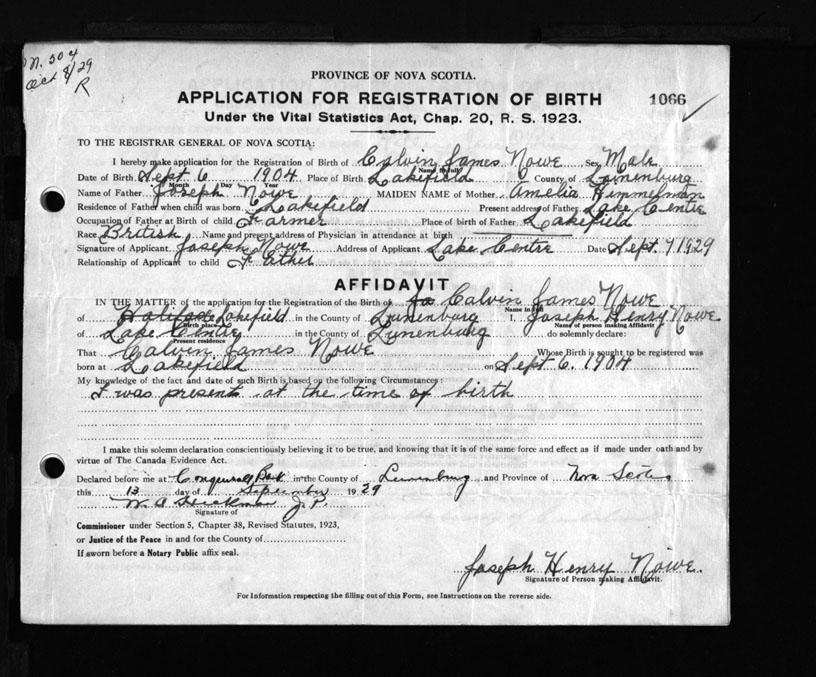 N. 504
Oct 8/29
R
PROVINCE OF NOVA SCOTIA.
APPLICATION FOR REGISTRATION OF BIRTH 1066
Under the Vital Statistics Act, Chap. 20, R. S. 1923.
TO THE REGISTRAR GENERAL OF NOVA SCOTIA:
I hereby make application for the Registration of Birth of Calvin James Nowe Sex Male
Name in full
Date of Birth Sept 6 1904 Place of Birth Lakefield County of Lunenburg
Month Day Year
Name of Father Joseph Nowe MAIDEN NAME of Mother Amelia Himmelman
Residence of Father when child was born Lakefield Present address of Father Lake Centre
Occupation of Father at Birth of child Farmer Place of birth of Father Lakefield
Race British Name and present address of Physician in attendance at birth
Signature of Applicant Joseph Nowe Address of Applicant Lake Centre Date Sept. 7 1929
Relationship of Applicant to child Father
AFFIDAVIT
IN THE MATTER of the application for the Registration of the Birth of Jo Calvin James Nowe
Name in full
of Lakefield in the County of Lunenburg I, Joseph Henry Nowe
Birth place Name of person making Affidavit
of Lake Centre in the County of Lunenburg do solemnly declare:
Present residence
That Calvin James Nowe Whose Birth is sought to be registered was
born at Lakefield on Sept 6. 1904
My knowledge of the fact and date of such Birth is based on the following Circumstances:
I was present at the time of birth
I make this solemn declaration conscientiously believing it to be true, and knowing that it is of the same force and effect as if made under oath and by
virtue of The Canada Evidence Act.
Declared before me at in the County of Lunenburg and Province of Nova Scotia
this 13 day of September 1929
W. A. J. P.
Signature of
Commissioner under Section 5, Chapter 38, Revised Statutes, 1923,
or Justice of the Peace in and for the County of
If sworn before a Notary Public affix seal.
Joseph Henry Nowe.
Signature of Person making Affidavit.
For Information respecting the filling out of this Form, see Instructions on the reverse side.